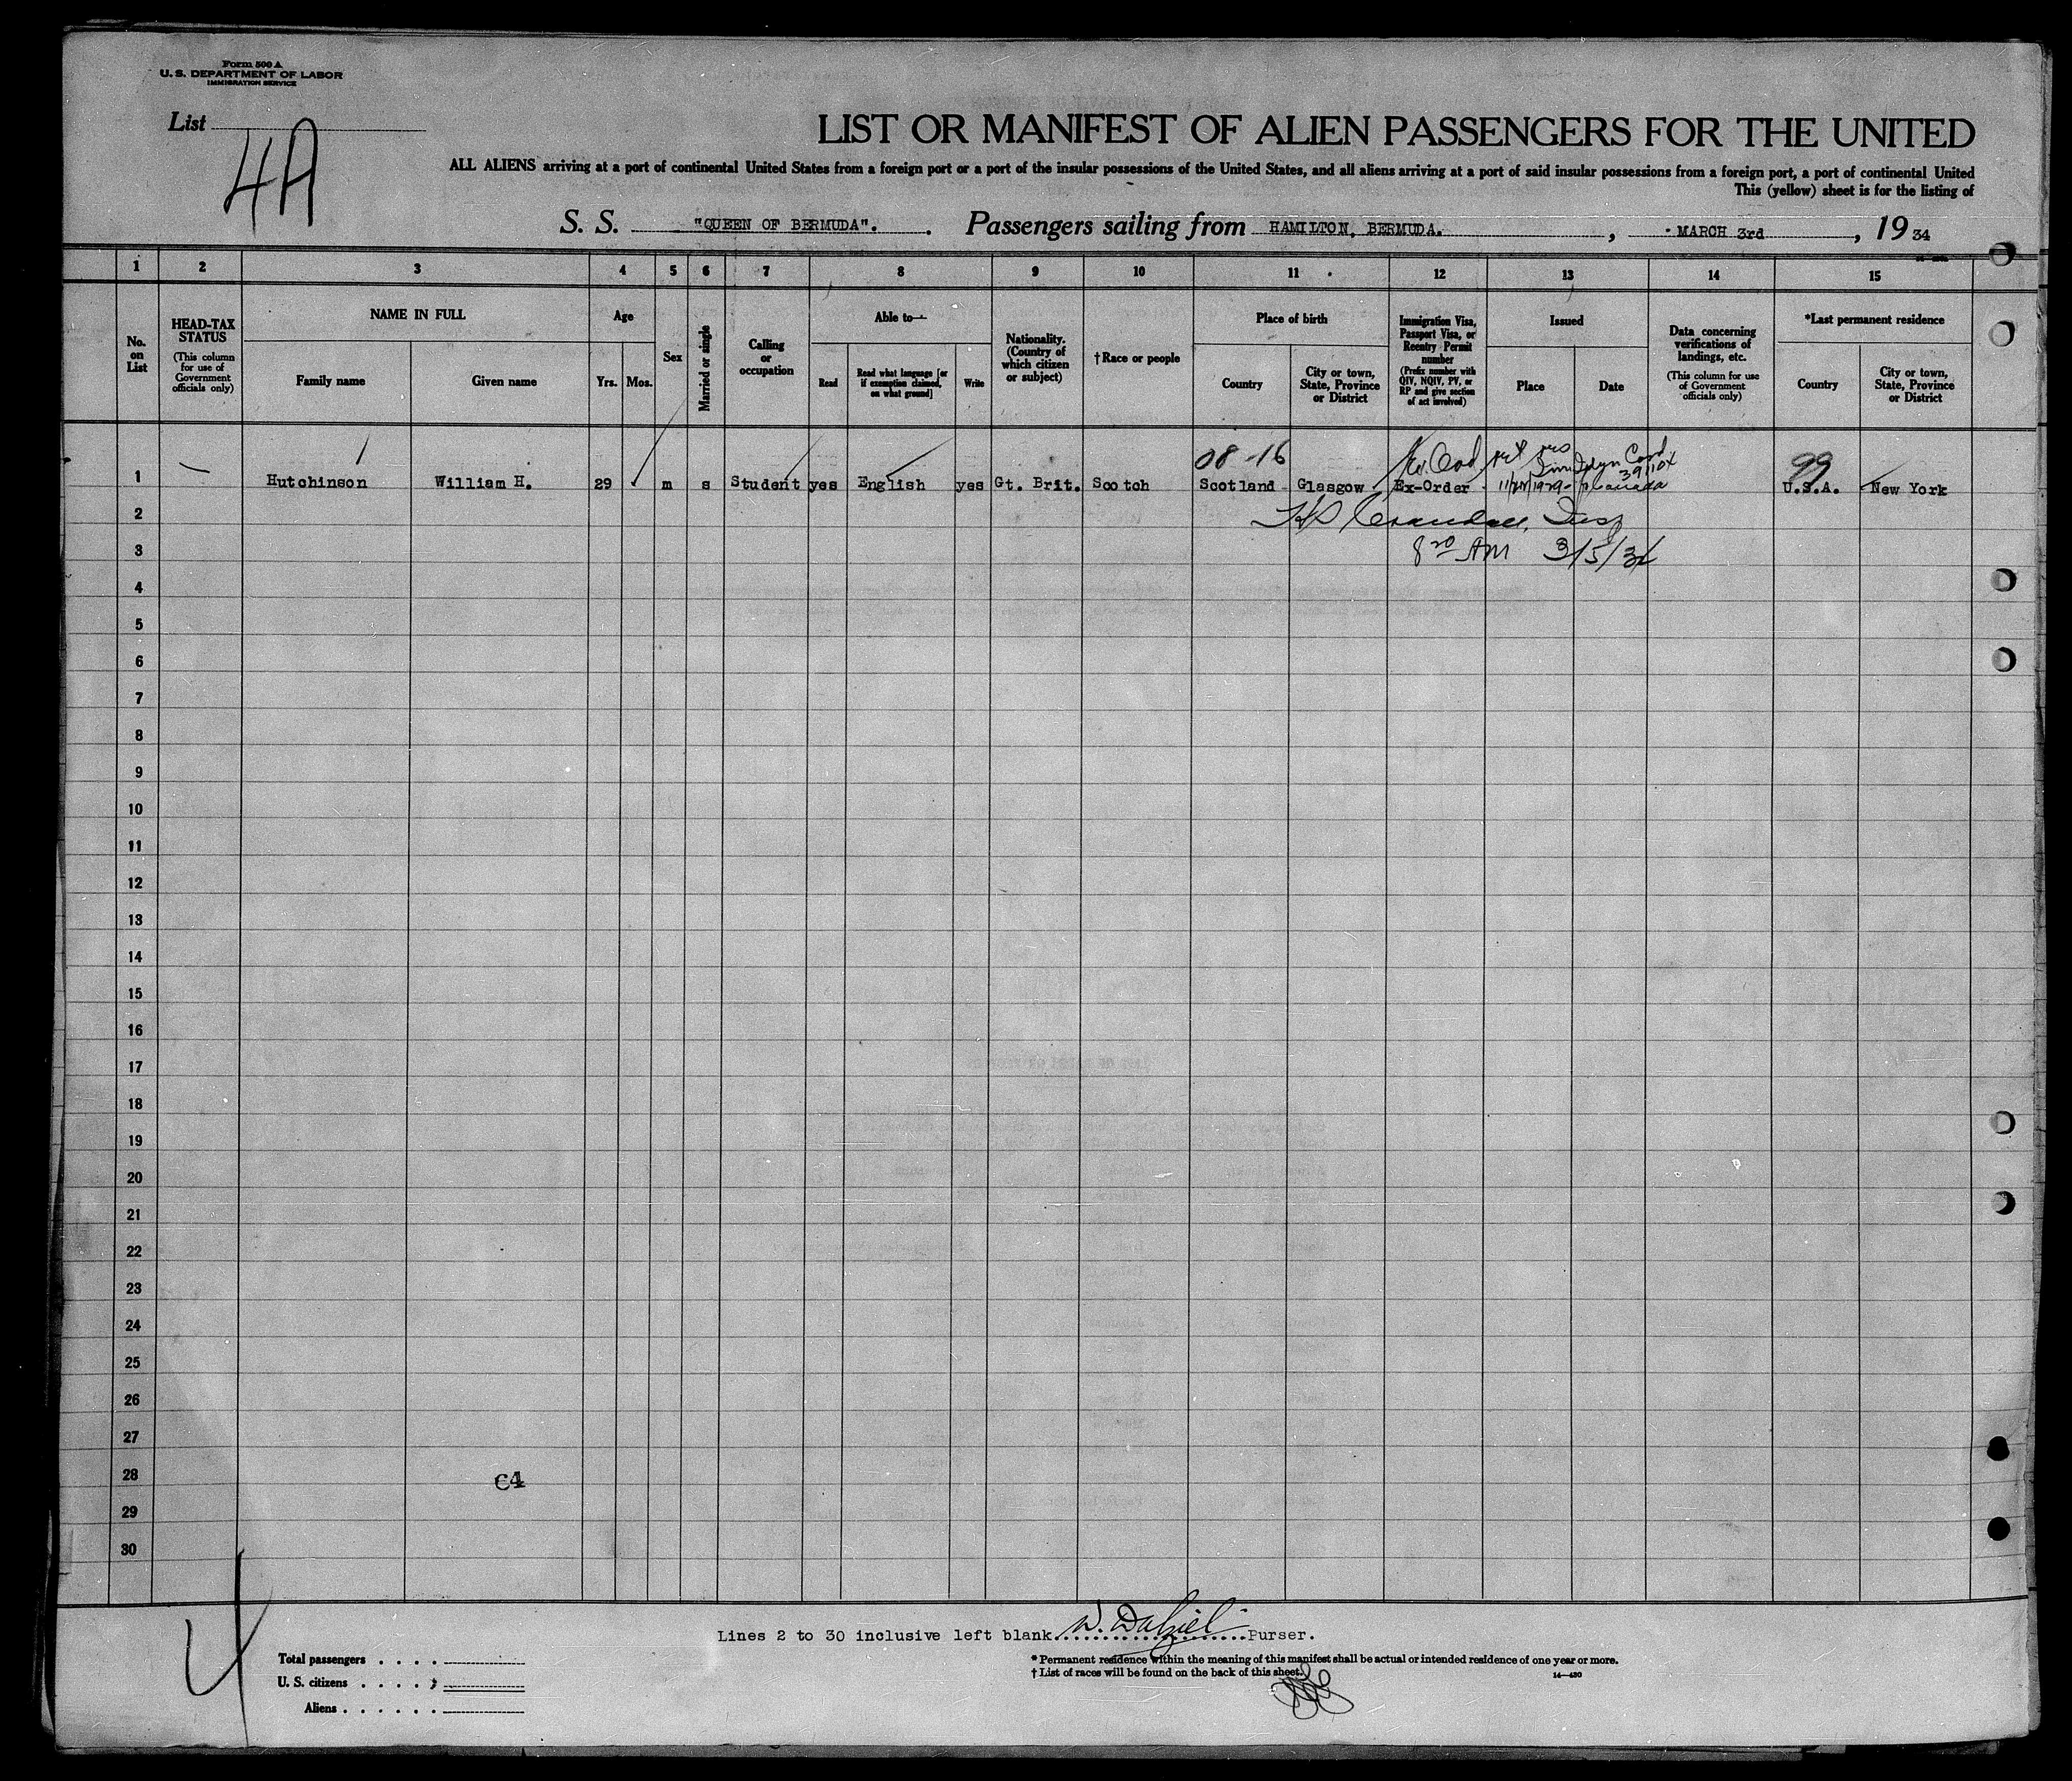 Form 500 A
U. S. DEPARTMENT OF LABOR
IMMIGRATION SERVICE
List
4A
LIST OR MANIFEST OF ALIEN PASSENGERS FOR THE UNITED
ALL ALIENS arriving at a port of continental United States from a foreign port or a port of the insular possessions of the United States, and all aliens arriving at a port of said insular possessions from a foreign port, a port of continental United
This (yellow) sheet is for the listing of
S. S. "QUEEN OF BERMUDA". Passengers sailing from HAMILTON, BERMUDA. , MARCH 3rd , 19 34
1 2 3 4 5 6 7 8 9 10 11 12 13 14 15
No. on List
HEAD-TAX STATUS
(This column for use of Government officials only)
NAME IN FULL
Family name
Given name
Age
Yrs. Mos.
Sex
Married or single
Calling or occupation
Able to—
Read
Read what language [or if exemption claimed, on what ground]
Write
Nationality. (Country of which citizen or subject)
†Race or people
Place of birth
Country
City or town, State, Province or District
Immigration Visa, Passport Visa, or Reentry Permit number
(Prefix number with QIV, NQIV, PV, or RP and give section of act involved)
Issued
Place
Date
Data concerning verifications of landings, etc.
(This column for use of Government officials only)
*Last permanent residence
Country
City or town, State, Province or District
08-16
99
39110X
1 Hutchinson William H. 29 m s Student yes English yes Gt. Brit. Scotch Scotland Glasgow Ex-Order Canada U.S.A. New York
2
3 8 20 AM 3/5/34
4
5
6
7
8
9
10
11
12
13
14
15
16
17
18
19
20
21
22
23
24
25
26
27
28 C4
29
30
4
Lines 2 to 30 inclusive left blank W. Dalziel Purser.
Total passengers . . . .
U. S. citizens . . . . ;
Aliens . . . . . .
* Permanent residence within the meaning of this manifest shall be actual or intended residence of one year or more.
† List of races will be found on the back of this sheet.
14—430